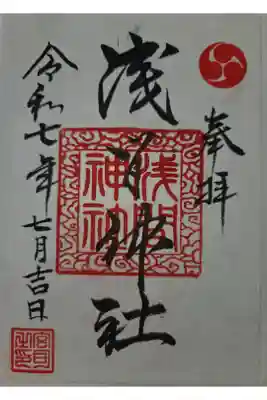 奉拝
浅間神社
浅間
神社
令和七年七月吉日